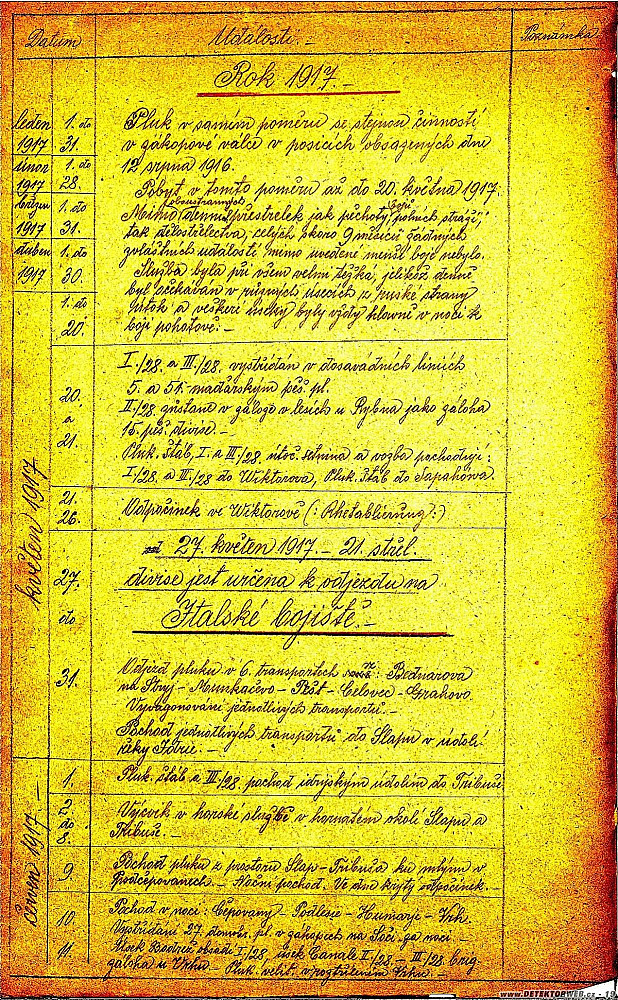 Datum
Události. -
Poznámka
Rok 1917. -
leden 1917
1. do 31.
Pluk v samém poměru se stejnou činností
v zákopové válce v posicích obsazených dne
12 srpna 1916.
únor 1917
1. do 28.
Pobyt v tomto poměru až do 20. května 1917.
březen 1917
1. do 31.
Mimo oboustranných denních přestřelek jak pěchoty, polních stráží,
tak dělostřelectva, celých skoro 9 měsíců žádných
zvláštních událostí mimo uvedené menší boje nebylo.
duben 1917
1. do 30.
Služba byla při všem velmi těžká, jelikož denně
byl očekáván v různých úsecích z ruské strany
útok a veškeré úseky byly vždy hlavně v noci k
boji pohotově. -
květen 1917
1. do 20.
20. a 21.
I./28. a III./28. vystřídán v dosavádních liniích
5. a 51. maďarským pěš. pl.
II/28 zůstane v záloze v lesích u Rybna jako záloha
15. pěš. divise. -
Pluk. štáb, I. a III./28. útoč. setnina a vozba pochodují:
I./28. a III./28 do Wiktorova, Pluk. štáb do Sapahówa.
21. 26.
Odpočinek ve Wiktorově (: Rhetablierung :)
27. do 31.
27. květen 1917. - 21. střel.
divise jest určena k odjezdu na
Italské bojiště. -
Odjezd pluku v 6. transportech z: Bednarova
na Stryj - Munkačevo - Pešť - Celovec - Grahovo
Vyvagonování jednotlivých transportů. -
Pochod jednotlivých transportů do Slapu v údolí
řeky Idrie. -
červen 1917 -
1.
Pluk. štáb a III/28. pochod idrijským údolím do Tribuše
2 do 8.
Výcvik v horské službě v hornatém okolí Slapu a
Tribuše. -
9
Pochod pluku z prostoru Slap - Tribuša ku mlýnu v
Podčepovanech. - Noční pochod. Ve dne krytý odpočinek. -
10
Pochod v noci: Čepovany - Podlesce - Humarje - Vrh
Vystřídání 27. domobr. pl. v zákopech na Soči za noci
11.
Úsek Bodrež obsadí I./28, úsek Canale II/28 - III/28. brig.
záloha u Vrhu - Pluk. velit. v Vrhu. -
www.DETEKTORWEB.cz - 19